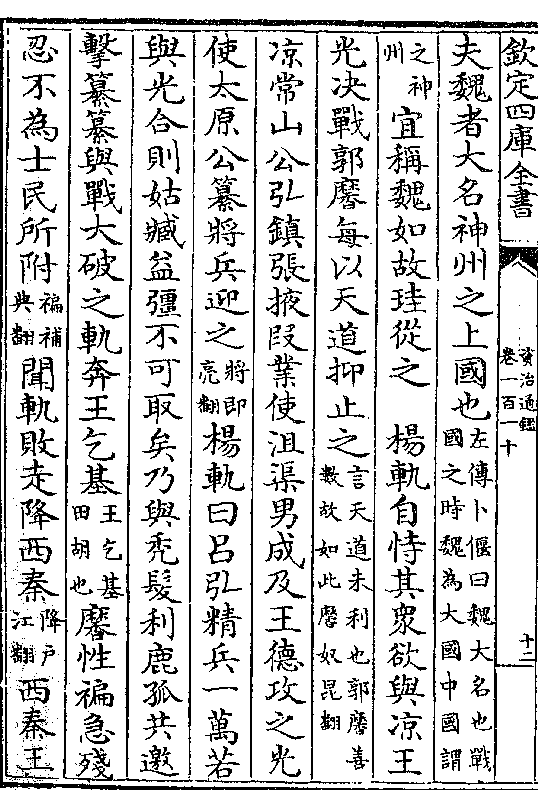 欽定四庫全書
資治通鑑
卷一百一十
十二
夫魏者大名神州之上國也左傳卜偃曰魏大名也戰國之時魏為大國中國謂
之神州宜稱魏如故珪從之 楊軌自恃其衆欲與凉王
光决戰郭黁每以天道抑止之言天道未利也郭黁善數故如此黁奴昆翻
凉常山公弘鎮張掖段業使沮渠男成及王德攻之光
使太原公纂將兵迎之將即亮翻楊軌曰吕弘精兵一萬若
與光合則姑臧益彊不可取矣乃與秃髮利鹿孤共邀
擊纂纂與戰大破之軌奔王乞基王乞基田胡也黁性褊急殘
忍不為士民所附褊補典翻聞軌敗走降西秦降戶江翻西秦王